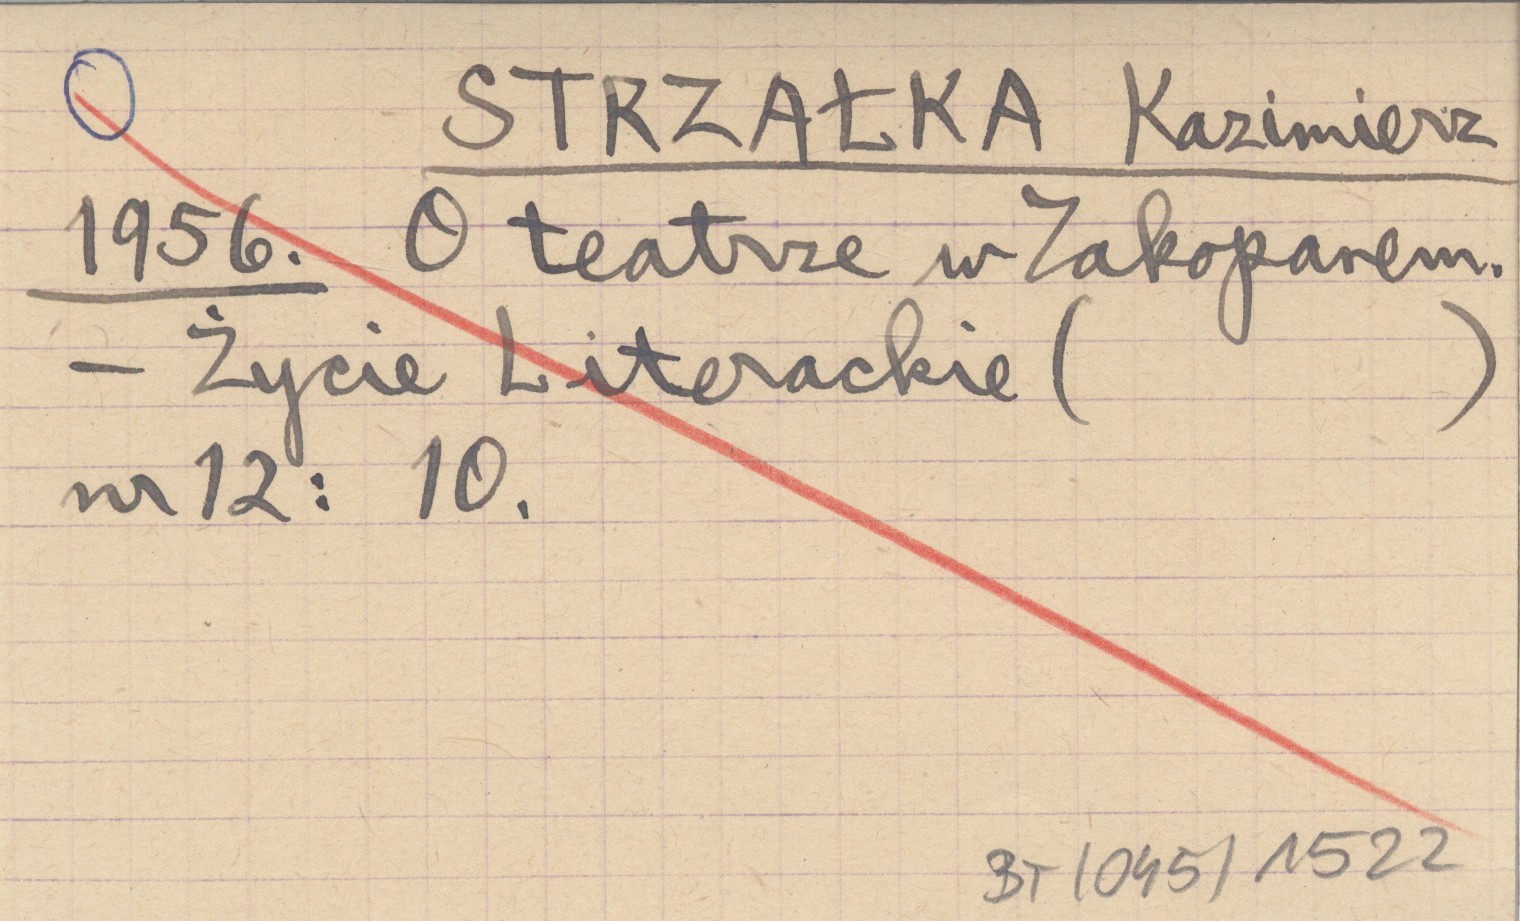 STRZAŁKA Kazimierz
1956. O teatrze w Zakopanem.
- Życie Literackie ( )
nr 12: 10.
BT (045) 1522